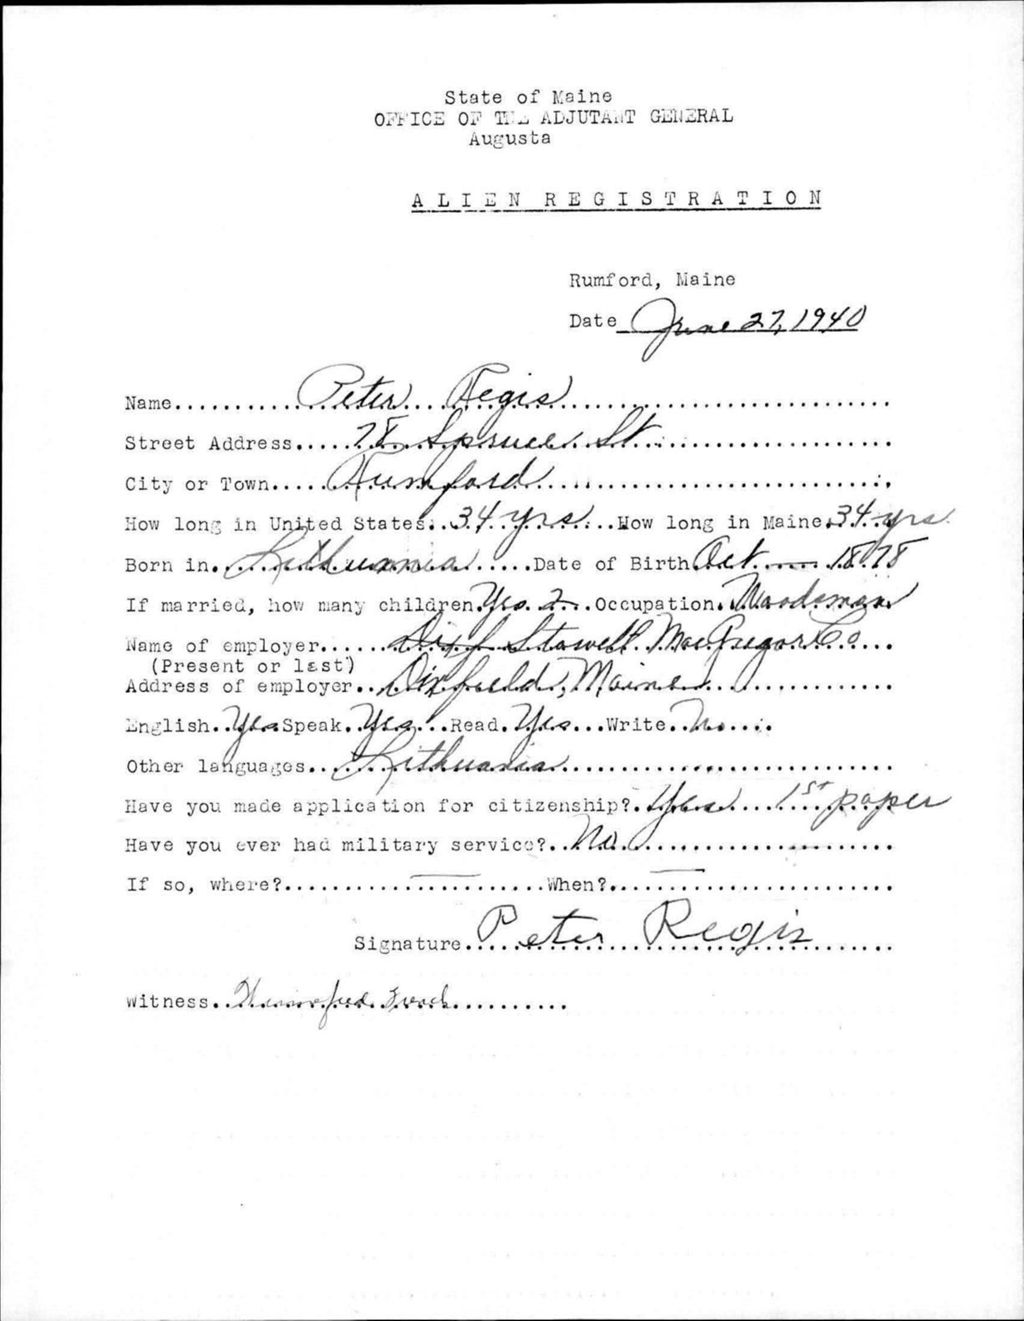 State of Maine
OFFICE OF THE ADJUTANT GENERAL
Augusta
ALIEN REGISTRATION
Rumford, Maine
Date June 27, 1940
Name..........Peter Regis
Street Address.....78 Spruce St.
City or Town.....Rumford
How long in United States..34 yrs...How long in Maine.34 yrs.
Born in.Lithuania.....Date of Birth Oct. — 1878
If married, how many children.Yes. 2...Occupation.Woodsman
Name of employer......Stowell MacGregor Co...
(Present or last)
Address of employer..Dixfield, Maine
English..Yes Speak.Yes...Read.Yes...Write..No....
Other languages...Lithuania
Have you made application for citizenship?.Yes....1st paper
Have you ever had military service?..No.
If so, where?.......................When?..........................
Signature..Peter Regis
Witness..